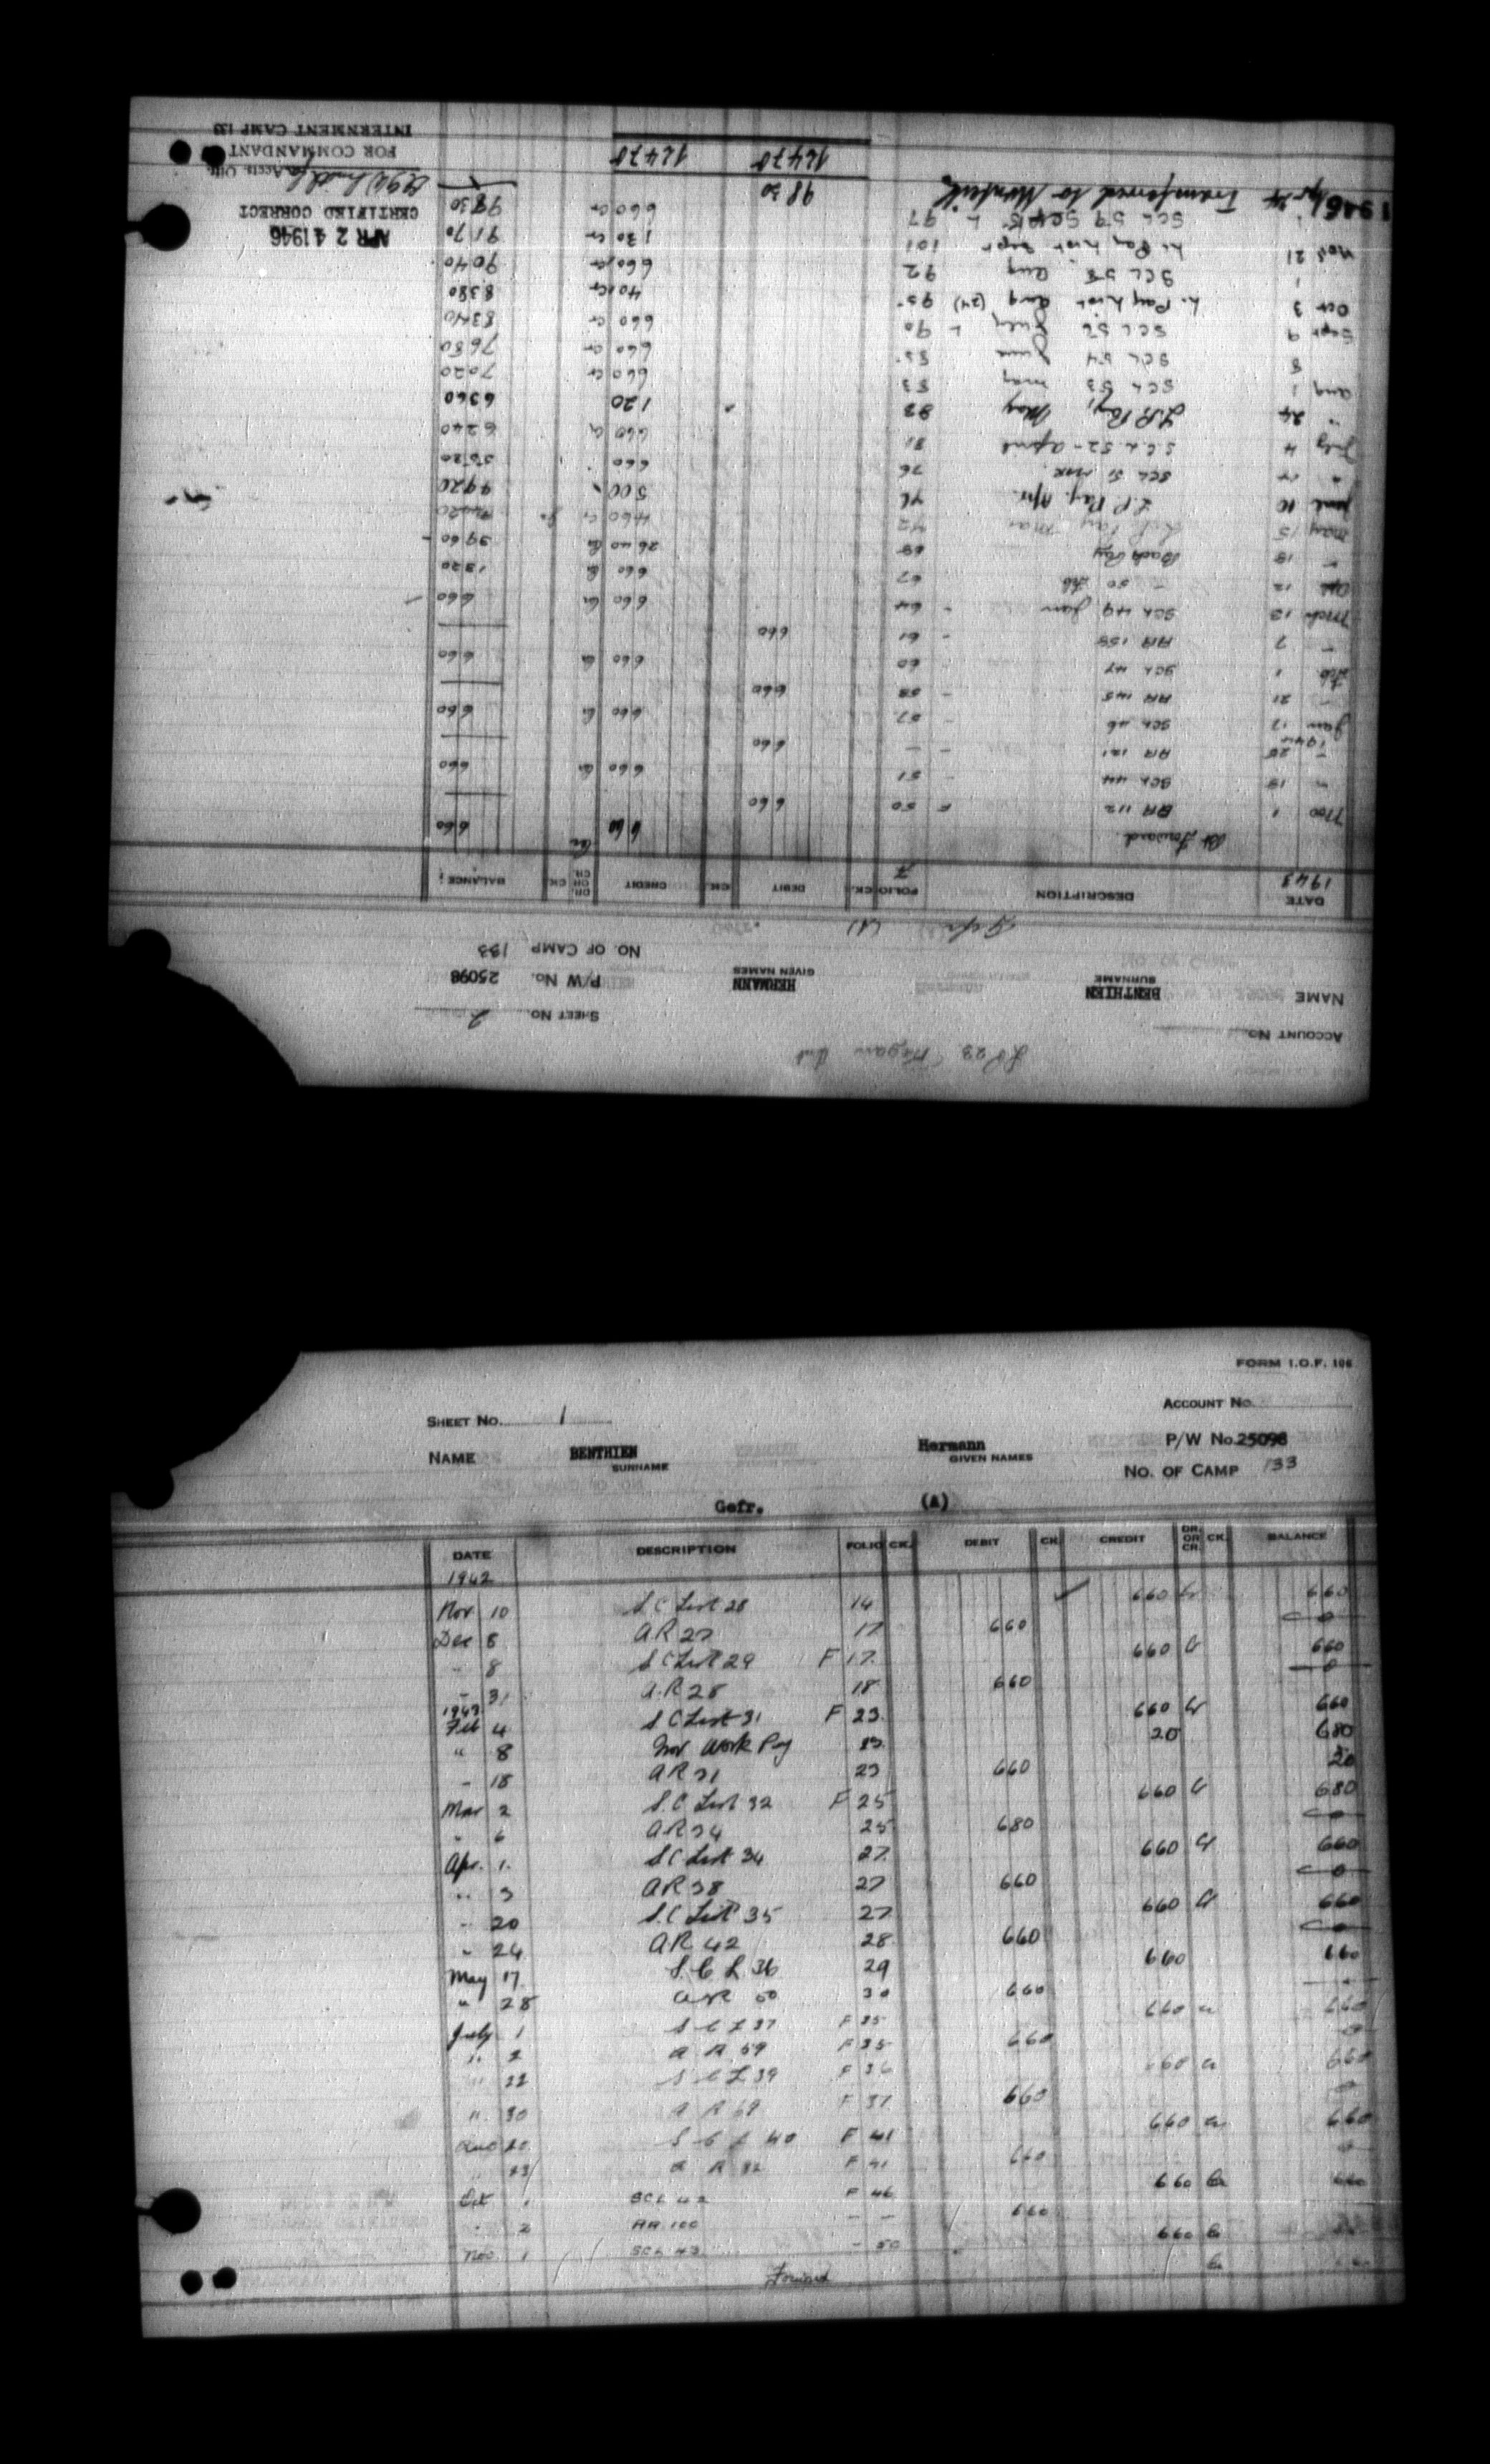 FORM I.O.F. 106
SHEET NO. 1 ACCOUNT NO.
NAME BENTHIEN Hermann P/W No. 25098
SURNAME GIVEN NAMES
NO. OF CAMP 133
Gefr. (A)
DATE DESCRIPTION FOLIO CK. DEBIT CK. CREDIT DR. OR CR. CK. BALANCE
1942
Nov 10 S.C List 28 14 660 Cr 660
Dec 8 A.R 27 17 660 0
" 8 S C List 29 F 17 660 Cr 660
" 31 A.R 28 18 660 0
1943
Feb 4 S C List 31 F 23 660 Cr 660
" 8 Nov Work Pay 23 20 680
" 18 AR 31 23 660 20
Mar 2 S.C List 32 F 25 660 Cr 680
" 6 AR 34 25 680 0
Apr. 1 S C List 34 27 660 Cr 660
" 3 AR 38 27 660 0
" 20 S.C List 35 27 660 Cr 660
" 24 AR 42 28 660 0
May 17 S.C L 36 29 660 660
" 28 A R 50 30 660
July 1 S C L 37 F 35 660 Cr 660
" 2 A R 59 F 35 660 0
" 22 S C L 39 F 36 660 Cr 660
" 30 A R 69 F 37 660 0
Aug 20 S C L 40 F 41 660 Cr 660
23 A R 82 F 41 660 0
Oct 1 SCL 42 F 46 660 Cr 660
" 2 AR 100 - - 660
Nov 1 SCL 43 - 50 660 Cr
Forward Cr
ACCOUNT NO. SHEET NO. 2
NAME BENTHIEN HERMANN P/W No. 25098
SURNAME GIVEN NAMES
NO. OF CAMP 133
Gefr. (A)
DATE DESCRIPTION FOLIO CK. DEBIT CK. CREDIT DR. OR CR. CK. BALANCE
1943
Bt Forward 660 Cr 660
Nov 1 AR 112 F 50 660
" 19 SCL 44 - 51 660 Cr 660
" 25 AR 121 - - 660
1944
Jan 17 SCL 46 - 57 660 Cr 660
" 21 AR 145 - 58 660
Feb 1 SCL 47 60 660 Cr 660
" 7 AR 155 - 61 660
Mch 13 SCL 49 Jan - 64 660 Cr 660
Apl 12 - 50 Feb 67 660 Cr 1320
" 19 Back Pay 69 2640 Cr 3960
May 15 L.P. Pay Mar 72 460 Cr 4420
June 10 L.P. Pay. Apr. 76 500 4920
" SCL 51 Mar. 76 660 5580
July 4 S.C.L. 52 - April 81 660 Cr 6240
" 24 L.P. Pay, May 82 120 6360
Aug 1 SCL 53 May 83 660 Cr 7020
8 SCL 54 June 85 660 Cr 7680
Sept 9 SCL 56 July L 90 660 Cr 8340
Oct 3 L. Pay List Aug (24) 95 40 Cr 8380
1 SCL 58 Aug 92 660 Cr 9040
Nov 21 L. Pay List Sept 101 130 Cr 9170
1 SCL 59 Sept L 97 660 Cr 9830
1946 Apr 24 Transferred to Monteith 9830
12470 12470
APR 24 1946
CERTIFIED CORRECT
Accts. Off.
FOR COMMANDANT
INTERNMENT CAMP 133